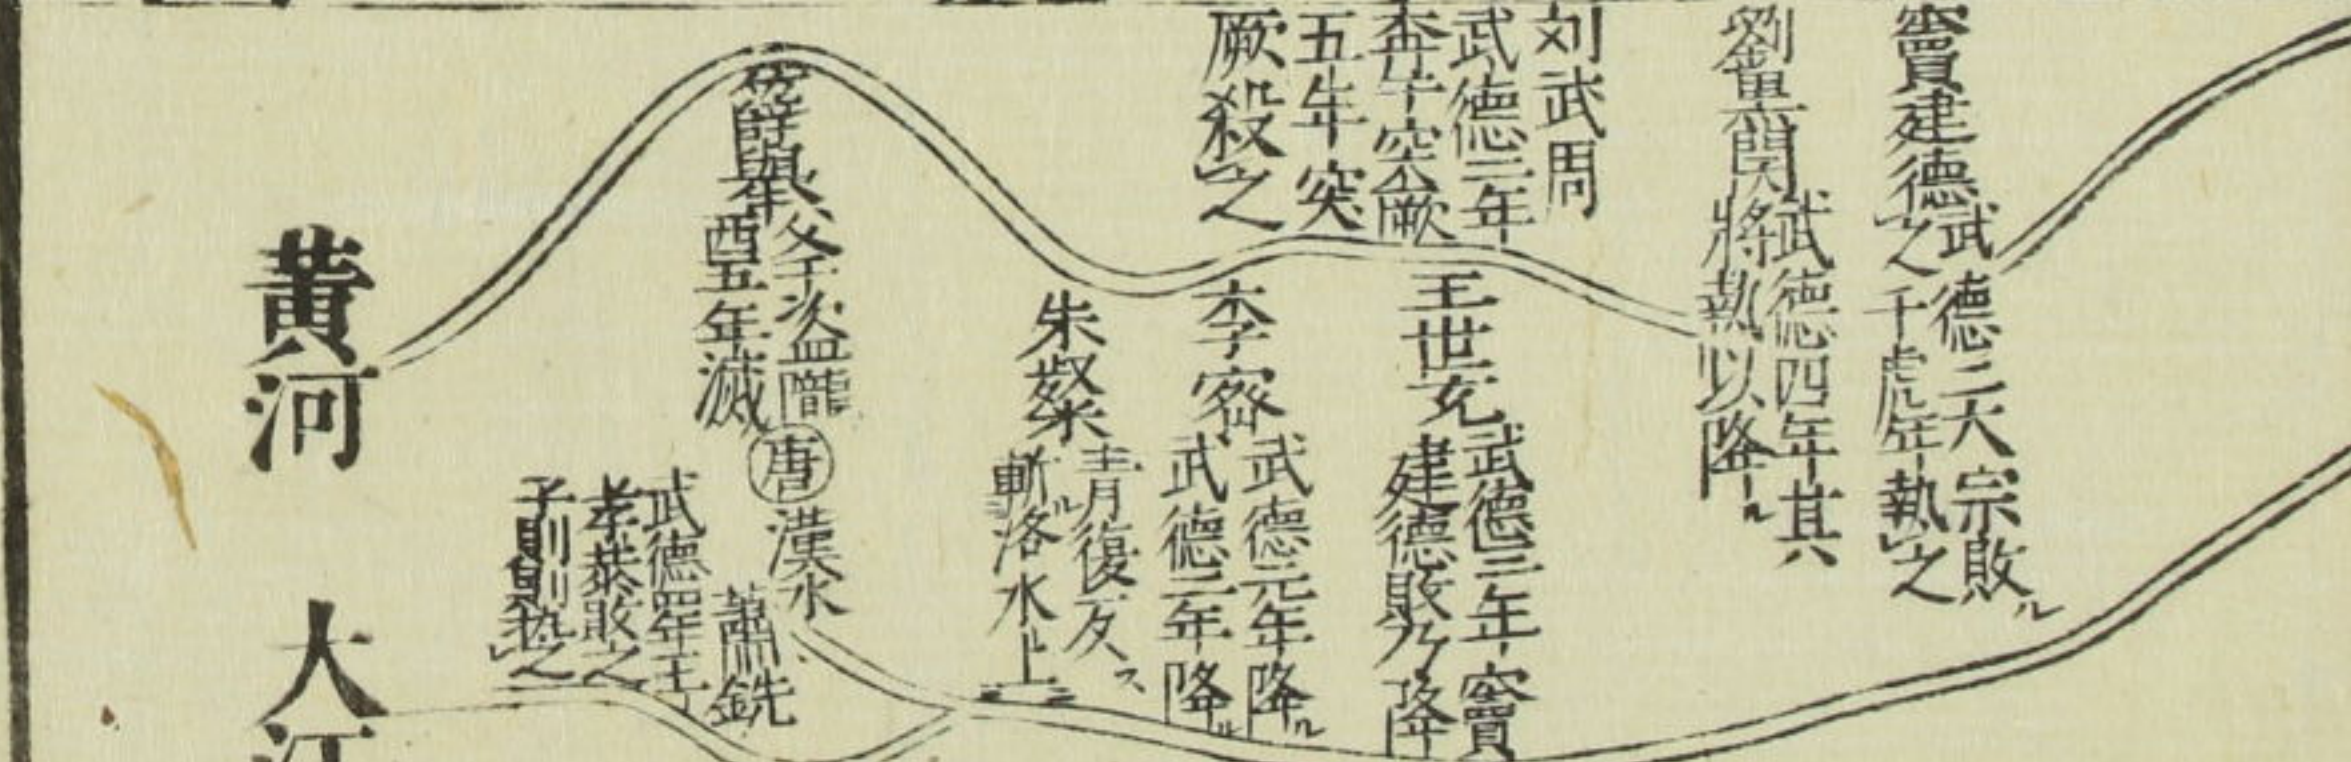 竇建德
武德二大宗敗ル
之千虎年執之
劉黒闥
武德四年其
将執以降ル
刘武周
武德三年
奔突厥
五年突
厥殺之
王世充
武德三年竇
建德敗乃降
李密
武德元年降ル
武德二年降ル
朱粲
青復反ス
斬ル洛水ル上
薛舉
父子盗隴
酉五年滅
唐
漢水
蕭銑
武德四年王
孝恭敗之
子則臭执之
黄河
大江